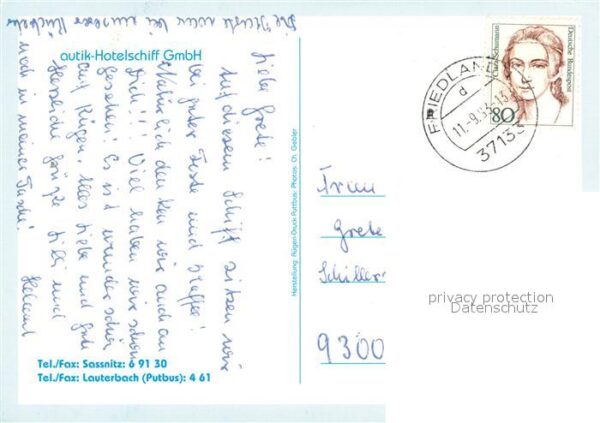 autik-Hotelschiff GmbH
Liebe Grete!
Auf diesem Schiff sitzen wir
bei guter Torte und Kaffee!
Natürlich denken wir auch an
Dich!!! Viel haben wir schon
gesehen! Es ist wunderschön
auf Rügen. Alles Liebe und Gute
Herzliche Grüße und
Helmut
noch in meiner Tasche!
Die Karte war bei unserer Rückkehr
Tel./Fax: Sassnitz: 6 91 30
Tel./Fax: Lauterbach (Putbus): 4 61
Herstellung: Rügen-Druck Putbus · Photos: Ch. Geisler
Clara Schumann
Deutsche Bundespost
80
FRIEDLAND
d
11.-9.93-13
37133
Frau
Grete
Schiller
9300
privacy protection
Datenschutz